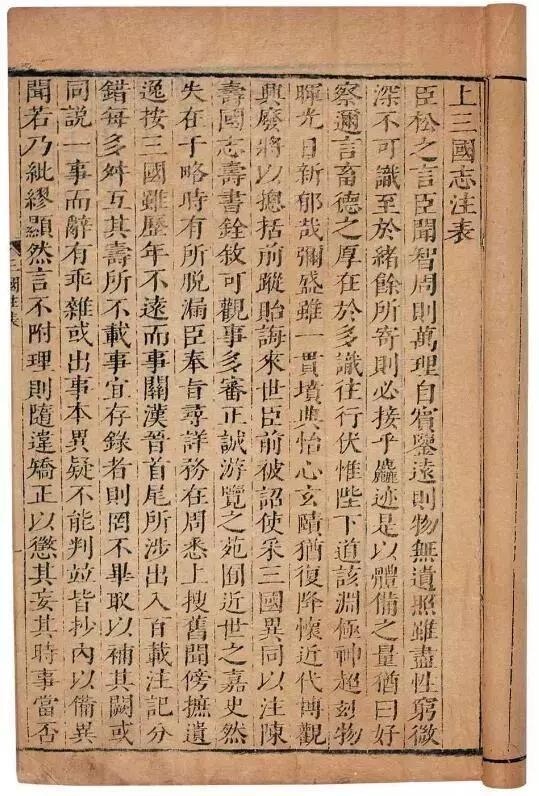 上三國志注表
臣松之言臣聞智周則萬理自賓鑒遠則物無遺照雖盡性窮微
深不可識至於緒餘所寄則必接乎麤迹是以體備之量猶曰好
察邇言畜德之厚在於多識往行伏惟陛下道該淵極神超玅物
暉光日新郁哉彌盛雖一貫墳典怡心玄賾猶復降懷近代博觀
興廢將以摠括前蹤貽誨來世臣前被詔使采三國異同以注陳
壽國志壽書銓敘可觀事多審正誠游覽之苑囿近世之嘉史然
失在于略時有所脫漏臣奉旨尋詳務在周悉上搜舊聞傍摭遺
逸按三國雖歷年不遠而事關漢晉首尾所涉出入百載注記分
錯每多舛互其壽所不載事宜存錄者則罔不畢取以補其闕或
同說一事而辭有乖雜或出事本異疑不能判並皆抄內以備異
聞若乃紕繆顯然言不附理則隨違矯正以懲其妄其時事當否
三國注表